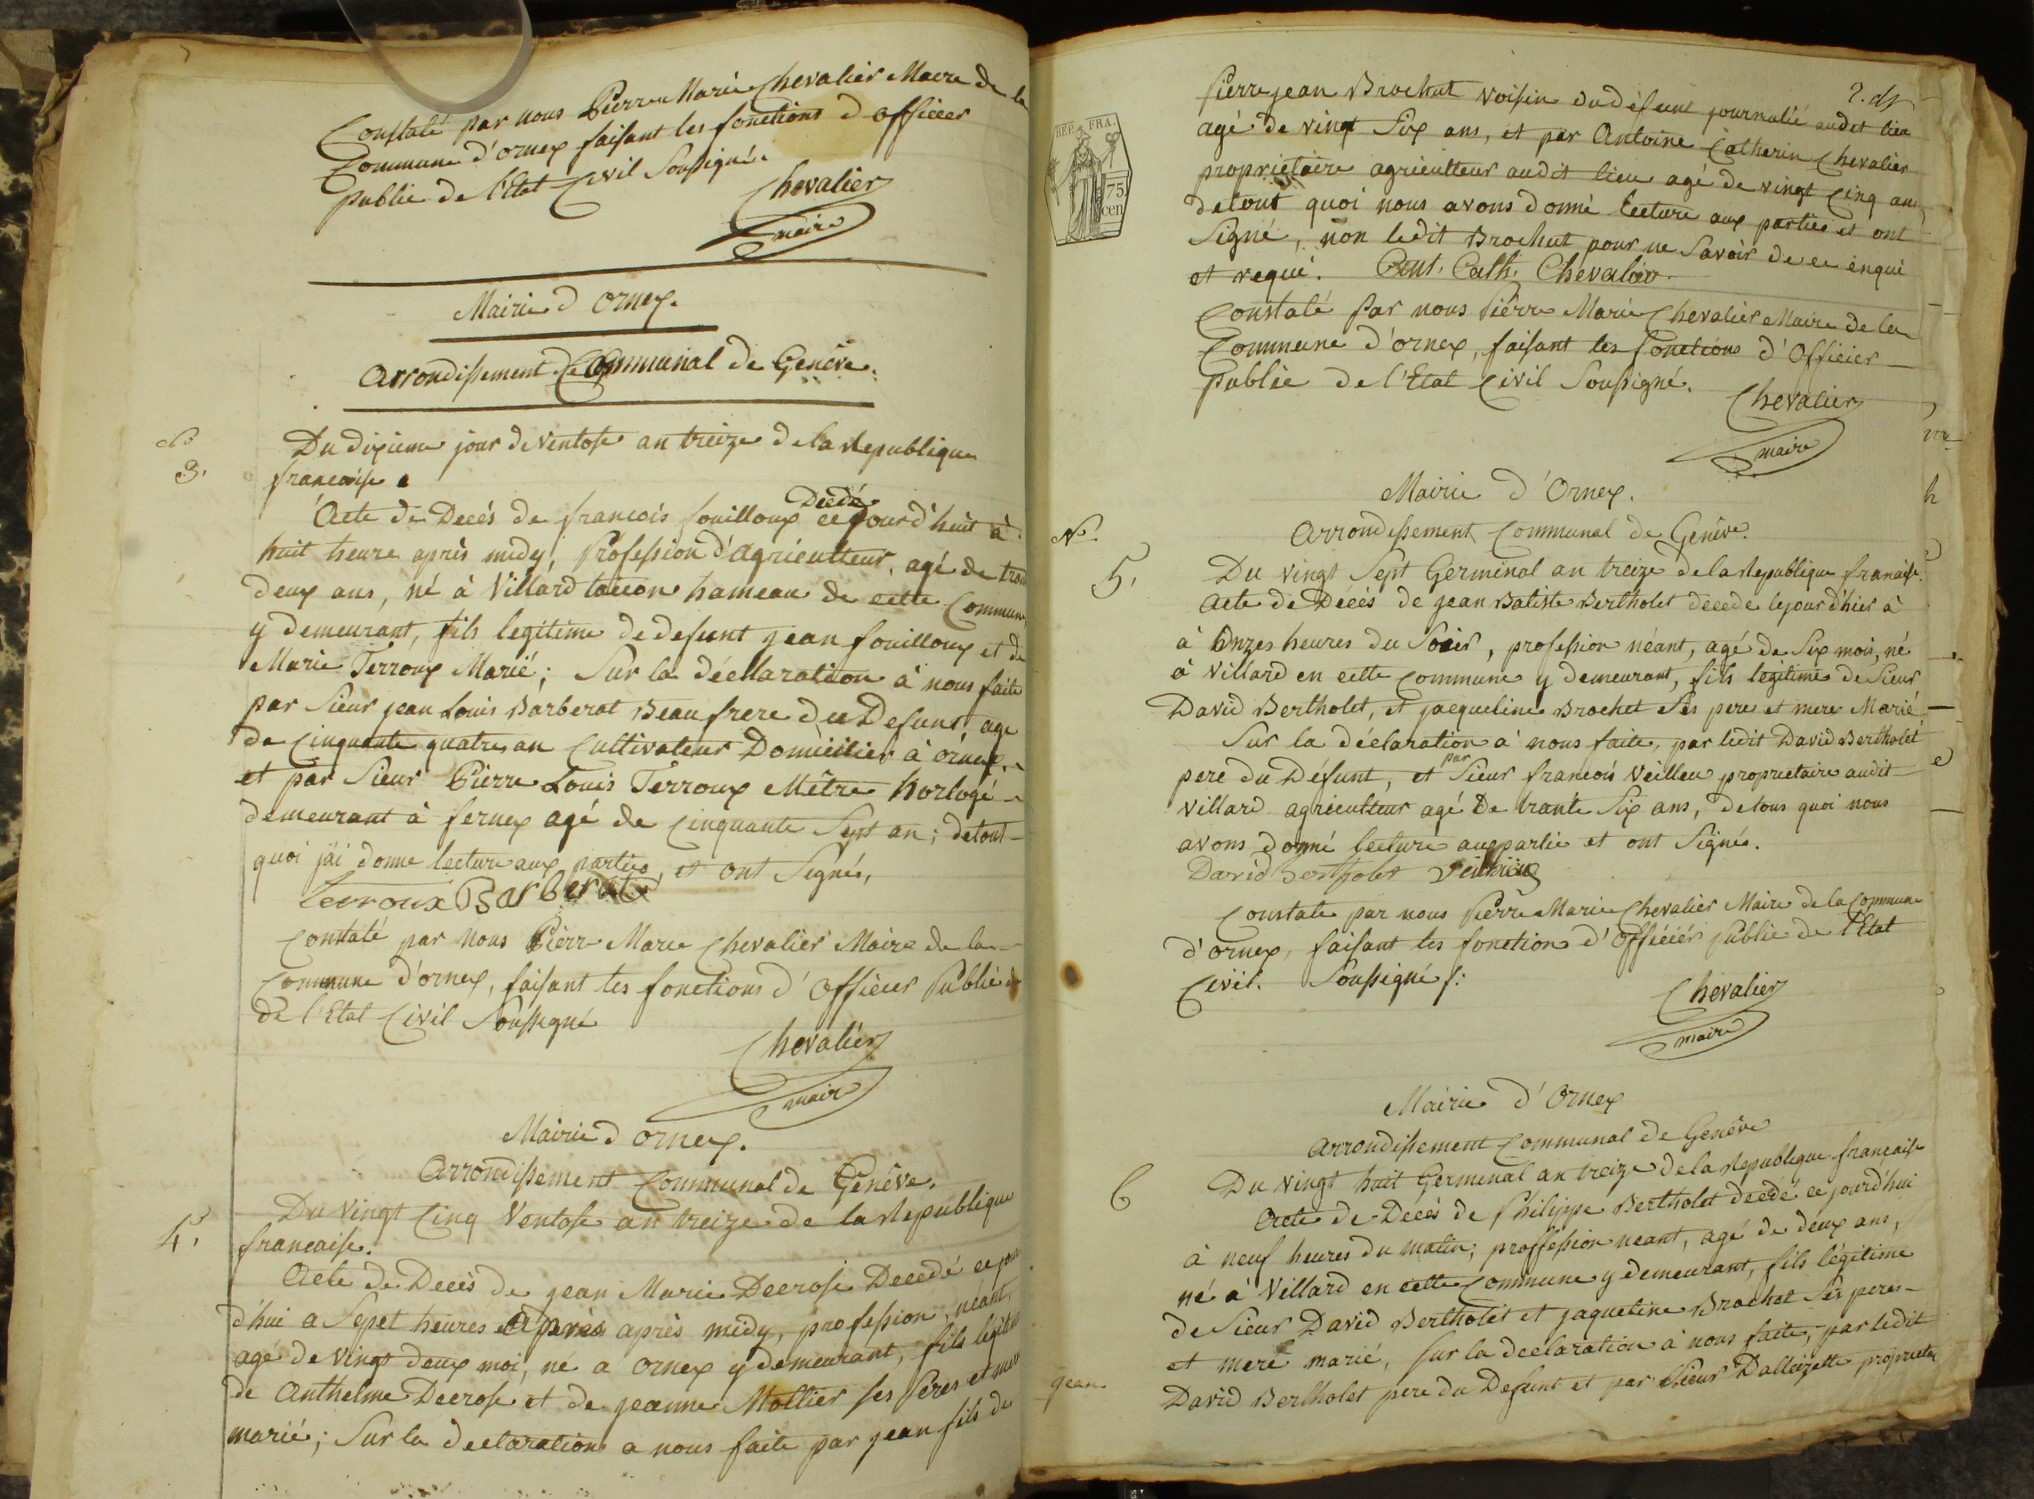 Constaté par nous Pierre Marie Chevalier Maire de la
Commune d'ornex faisant les fonctions d officier
public de l'Etat Civil Soussigné.
Chevalier
maire
Mairie d ornex.
Arrondissement Communal de Genêve.
N°
3.
Du dixieme jour de Ventose an treize de la Republique
francaise
Acte de Decés de francois fouilloux Decedé ce jourd'huit à
huit heure après midy, Profession d'agriculteur, agé de trente
deux ans, né à Villard tacon hameau de cette Commune
y demeurant, fils legitime de defunt jean fouilloux et de
Marie Terroux Marié; Sur la déclaration à nous faite
par Sieur jean Louis Barberat Beaufrere du Defunt, age
de Cinquante quatre an Cultivateur Domicilier à ornex
et par Sieur Pierre Louis Terroux Mêtre horlogé
demeurant à fernex agé de Cinquante Sept an; detout
quoi j'ai donne lecture aux parties, et ont Signés,
terroux Barberat
Constaté par Nous Pierr Marie Chevalier Maire de la
Commune d'ornex, faisant les fonctions d' officier Public de
de l'Etat Civil Soussigné
Chevalier
maire
Mairie d ornex.
Arrondissement Communal de Genêve.
4.
Du vingt Cinq Ventose an treize de la Republique
francaise.
Acte de Decés de jean Marie Decrose Decedé ce jour
d'hui a Sepet heures après midy, profession néant,
agé de vingt deux moi, né a ornex y demeurant, fils légitime
de Anthelme Decrose et de jeanne Mottier ses Peres et mere
marié; Sur la declaration a nous faite par jean fils de
2.
REP. FRA.
75
cen
Pierre jean Brochut voisin du défunt journalié audit lieu
agé de vingt Six ans, et par Antoine Catherin Chevalier
propriétaire agriculteur audit lieu agé de vingt Cinq ans,
detout quoi nous avons donné lecture aux parties et ont
Signé, non ledit Brochut pour ne Savoir de ce enqui
et requi. Ant. Cath. Chevalier.
Constaté par nous Pierre Marie Chevalier Maire de la
Commune d'ornex, faisant les fonctions d' Officier
public de l'Etat Civil Soussigné.
Chevalier
maire
Mairie d' Ornex.
Arrondissement Communal de Genêve.
N°
5.
Du vingt Sept Germinal an treize de la Republique francaise.
Acte de Décés de jean Batiste Bertholet décede lejourd'hier à
à Onzes heures du Soir, profession néant, agé de Six mois, né
à Villard en cette Commune y demeurant, fils légitime de Sieur
David Bertholet, et jacqueline Brochet Ses pere et mere Marié
Sur la déclaration à nous faite, par ledit David Bertholet
pere du Défunt, et par Sieur francois Veillen proprietaire audit
Villard agriculteur agé De trante Six ans, detous quoi nous
avons donné lecture aux partie et ont Signés.
David bertholet
Constate par nous Pierre Marie Chevalier Maire de la Commune
d'ornex, faisant les fonction d' Officiér public de l'Etat
Civil. Soussigné
Chevalier
maire
Mairie d' Ornex
Arrondissement Communal de Genêve
6
Du vingt huit Germinal an treize de la Republique francaise
Acte de Decés de Philippe Bertholet decedé ce jourd'hui
à neuf heures du matin, proffession neant, agé de deux ans,
né à Villard en cette Commune y demeurant, fils légitime
de Sieur David Bertholet et jaqueline Brochet Ses peres
et mere marié, Sur la declaration à nous faite, par ledit
David Bertholet pere du Defunt et par Sieur Dalloizette
jean